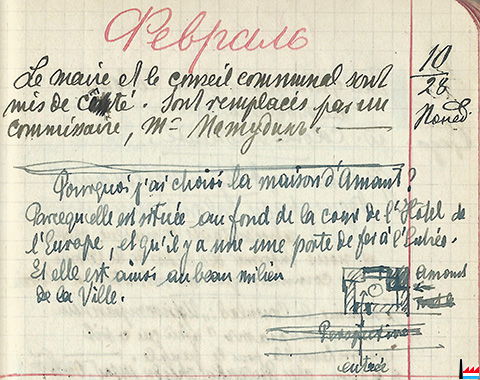 Февраль
10
28
Le maire et le conseil communal sont
mis de côté. Sont remplacés par un
commissaire, Mr
Pourquoi j'ai choisi la maison d'Amant?
Parcequ'elle est située au fond de la cour de l'Hôtel de
l'Europe, et qu'il y a une une porte de fer à l'Entrée.
Et elle est ainsi au beau milieu
de la Ville.
Amant
Perspective
entrée